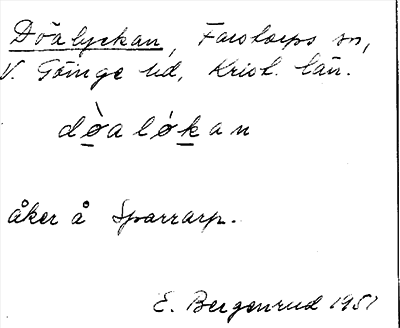 Döälyckan, Farstorps sn,
V. Göinge hd, Krist. län.
dø̀alókan
åker å Sparrarp.
E. Bergenrud 1951